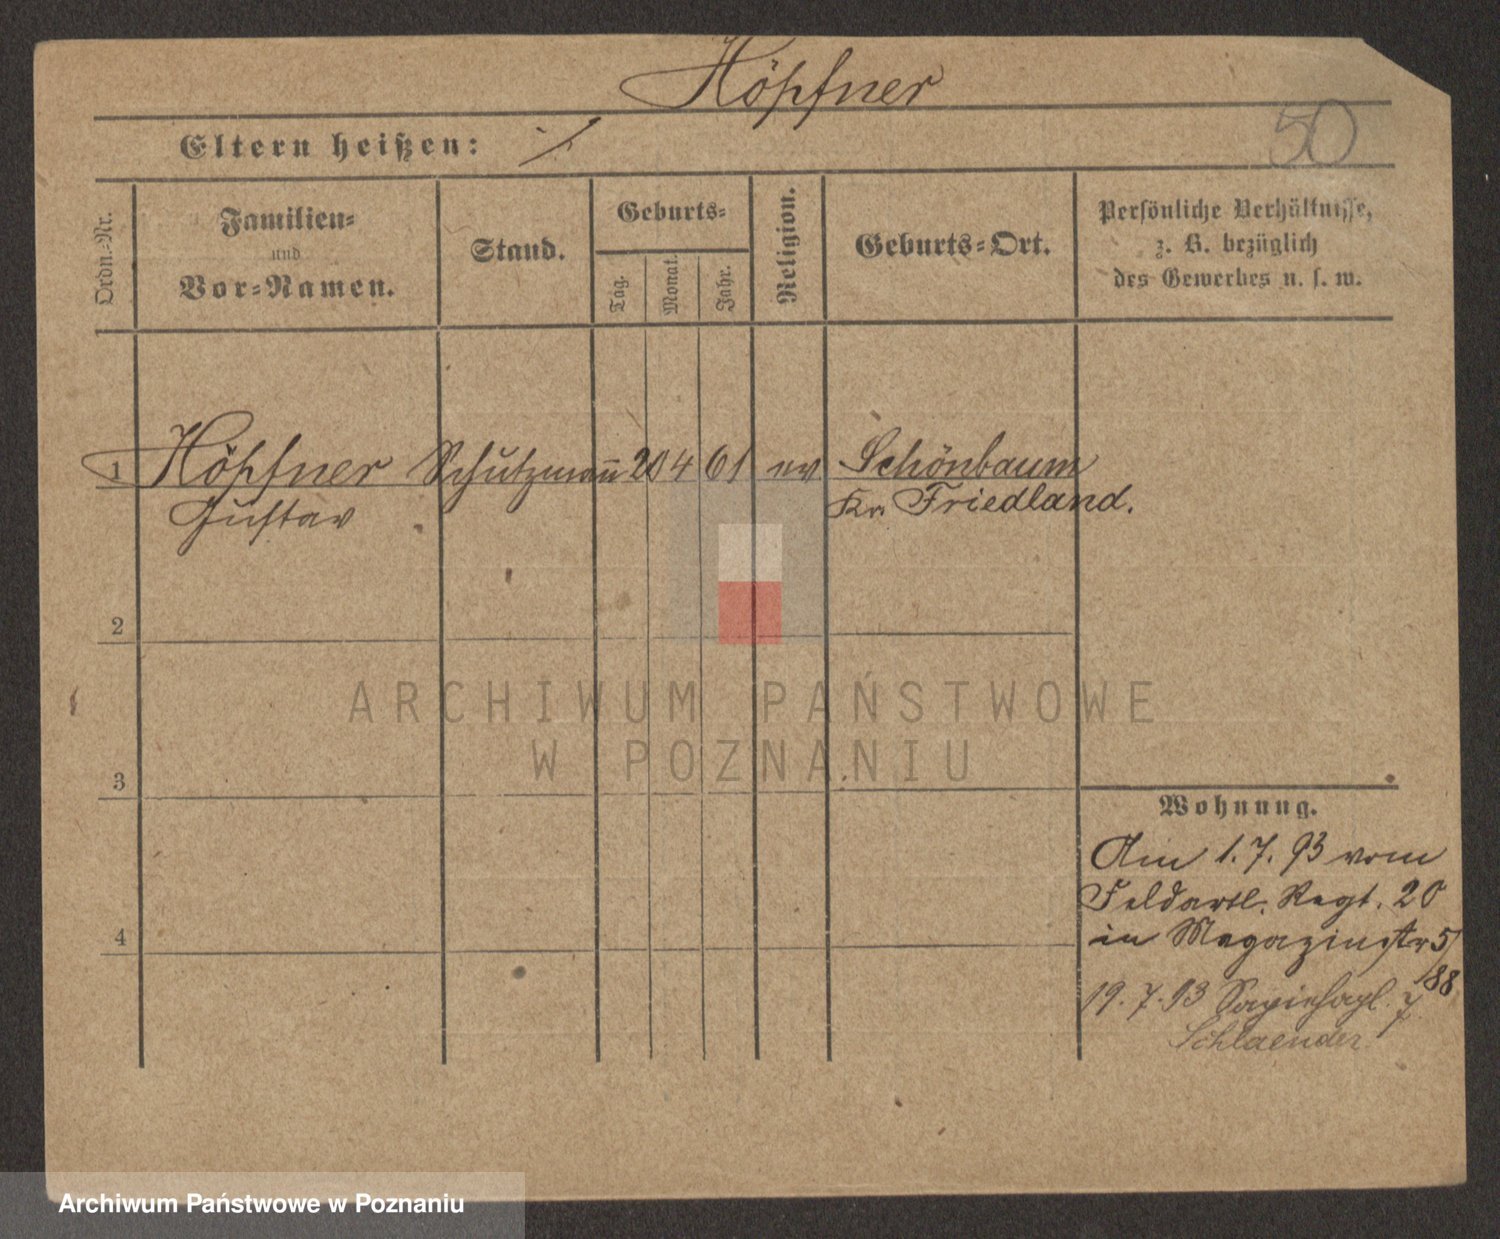 Höpfner
50
Eltern heißen: ·/.
Ordn.-Nr.
Familien-
und
Vor-Namen.
Stand.
Geburts-
Tag.
Monat.
Jahr.
Religion.
Geburts-Ort.
Persönliche Verhältnisse,
z. B. bezüglich
des Gewerbes u. s. w.
1 Höpfner Schutzmann 20 4 61 ev Schönbaum
Gustav Kr. Friedland.
2
3
4
Wohnung.
Am 1.7.93 vom
Feldartl. Regt. 20
in Magazinstr 5
/88
19.7.93 Sapiehapl. 7
Schlaender
ARCHIWUM PAŃSTWOWE
W POZNANIU
Archiwum Państwowe w Poznaniu